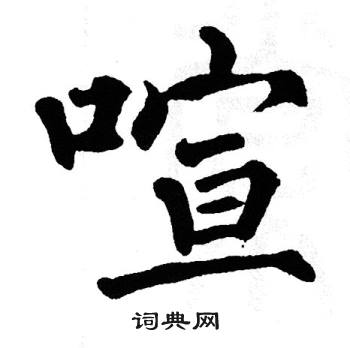 喧
词典网